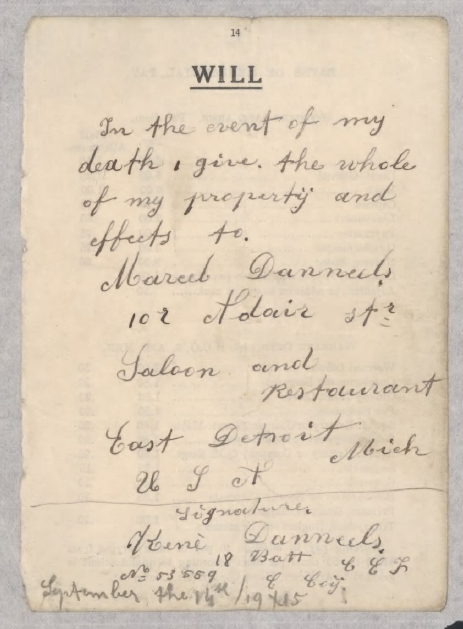 14
WILL
In the event of my
death, I give. the whole
of my property and
effects to.
Marcel Danneels
102 Adair str
Saloon and
Restaurant
East Detroit
Mich
U S A
Signature.
René Danneels.
18 Batt C E F
No 53559 C Coy.
September the 14th / 1915